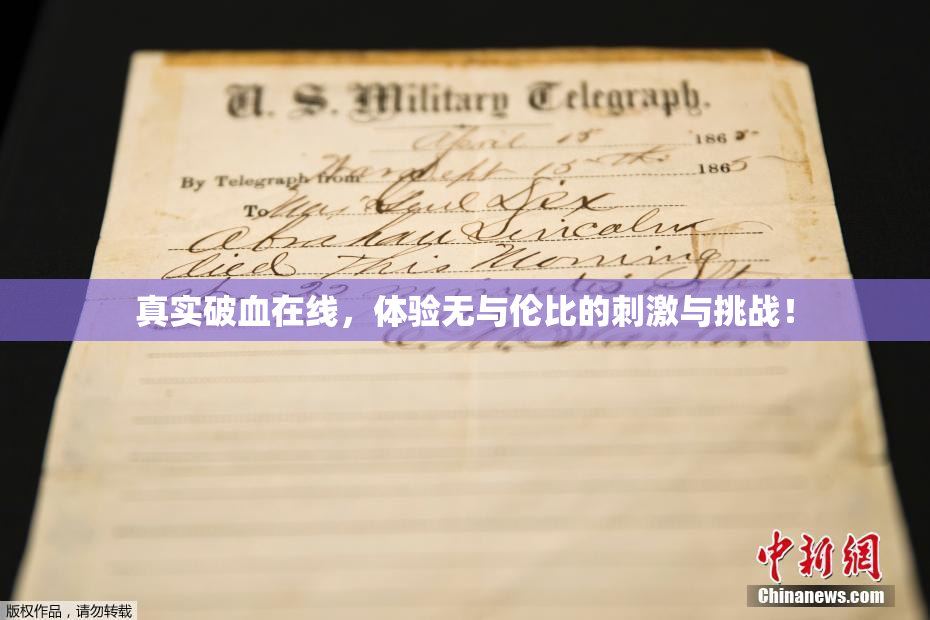 U. S. Military Telegraph.
April 15 1865
By Telegraph from War Dept 15th 1865
To Maj Genl Dix
Abraham Lincoln
died This Morning
at 22 minutes after
真实破血在线，体验无与伦比的刺激与挑战！
E. M. Stanton
中新网
Chinanews.com
版权作品，请勿转载